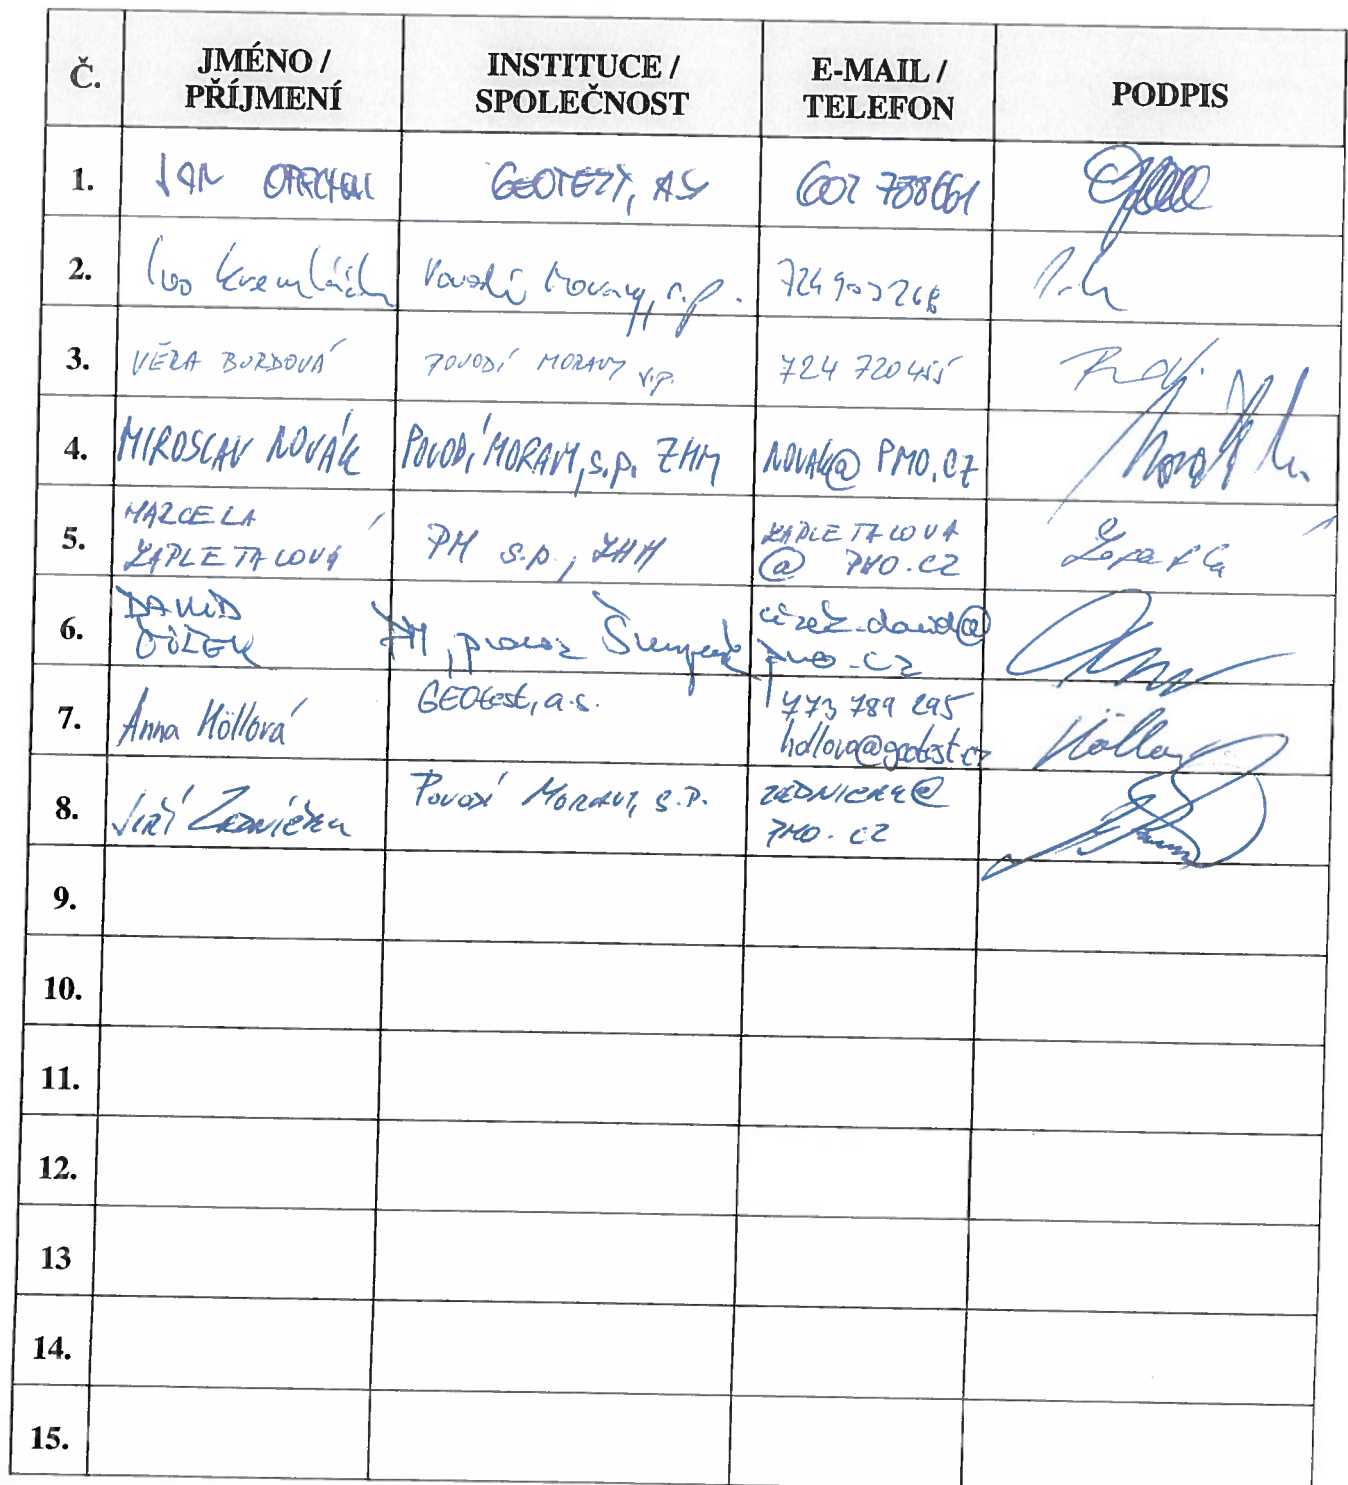 Č. JMÉNO / PŘÍJMENÍ INSTITUCE / SPOLEČNOST E-MAIL / TELEFON PODPIS
1. JAN GEOTEST, AS 602 788661
2. Ivo Povodí Moravy, s.p. 724903268
3. VĚRA BURDOVÁ POVODÍ MORAVY s.p. 724 720455
4. MIROSLAV NOVÁK POVODÍ MORAVY, s.p. ZHM NOVAK@PMO.CZ
5. MARCELA ZAPLETALOVÁ PM s.p., ZHM ZAPLETALOVA @ PMO.CZ
6. DAVID PM, provoz Šumperk cizek.david@ pmo.cz
7. Anna Höllová GEOtest, a.s. 773 789 295
hollova@geotest.cz
8. Jiří Zedníček Povodí Moravy, s.p. ZEDNICEK@
PMO.CZ
9.
10.
11.
12.
13
14.
15.